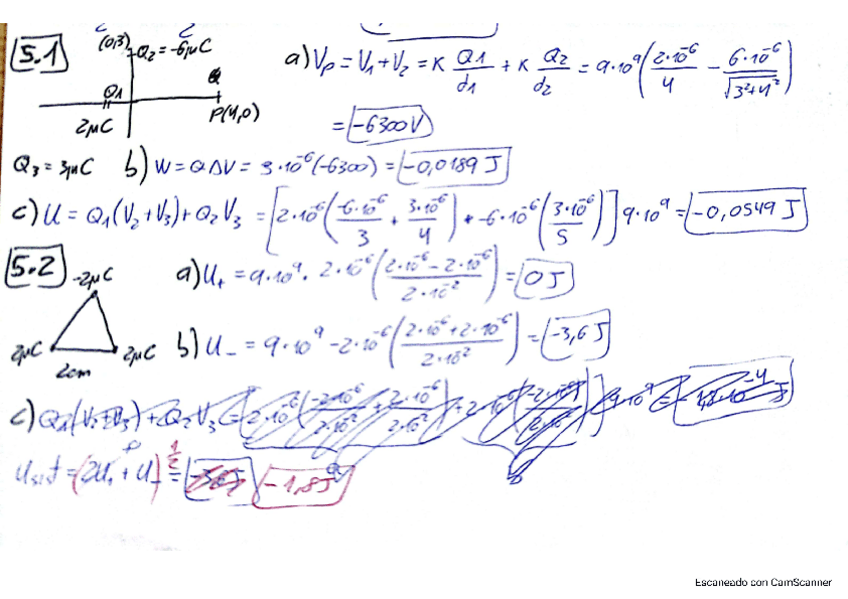 5.1
(0,3) Q₂ = -6μC
Q₁
2μC
Q
P(4,0)
a) Vp = V₁ + V₂ = K Q1/d₁ + K Q₂/d₂ = 9·10⁹ (2·10⁻⁶/4 - 6·10⁻⁶/√(3²+4²))
= -6300V
Q₃ = 3μC b) W = Q ΔV = 3·10⁻⁶(-6300) = -0,0189 J
c) U = Q₁(V₂+V₃) + Q₂V₃ = [2·10⁻⁶(-6·10⁻⁶/3 + 3·10⁻⁶/4) + -6·10⁻⁶(3·10⁻⁶/5)] 9·10⁹ = -0,0549 J
5.2
-2μC
2μC
2μC
2cm
a) U₊ = 9·10⁹ · 2·10⁻⁶ (2·10⁻⁶ - 2·10⁻⁶/2·10⁻²) = 0 J
b) U₋ = 9·10⁹ - 2·10⁻⁶ (2·10⁻⁶ + 2·10⁻⁶/2·10⁻²) = -3,6 J
c) Q₁(V₂+V₃) + Q₂V₃ =
Usist = (2U₊ + U₋) 1/2 = -1,8J
Escaneado con CamScanner